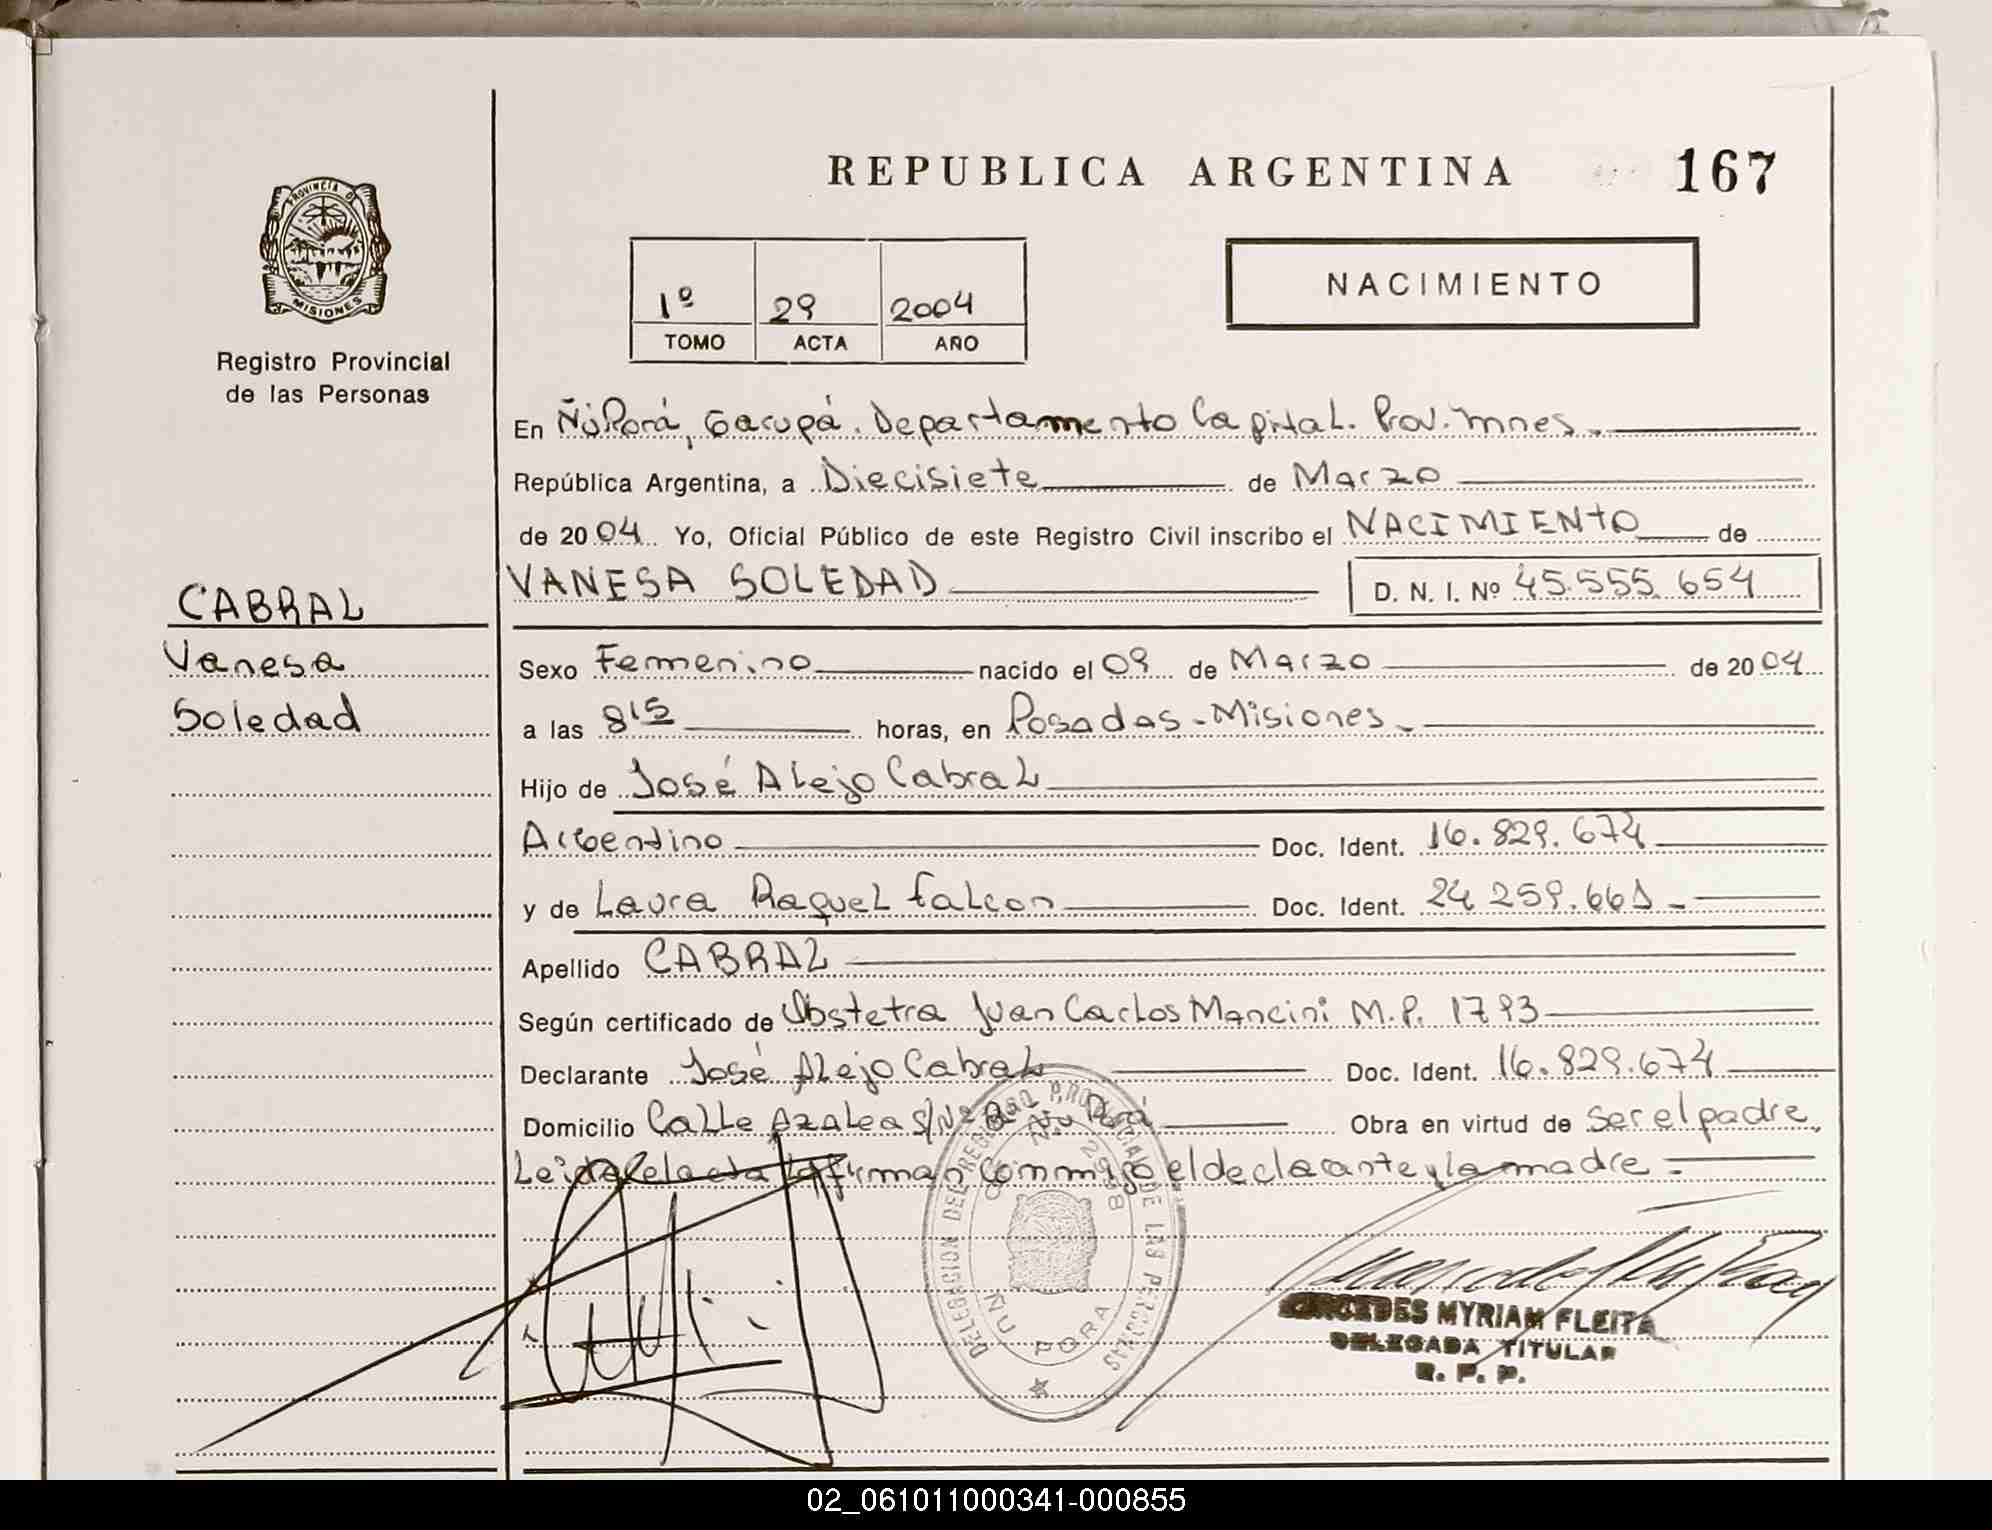 REPUBLICA ARGENTINA 167
PROVINCIA D
MISIONES
Registro Provincial
de las Personas
1º 29 2004
TOMO ACTA AÑO
NACIMIENTO
En Ñu Porá, Garupá. Departamento Capital. Prov. Mnes.
República Argentina, a Diecisiete de Marzo
de 2004 Yo, Oficial Público de este Registro Civil inscribo el NACIMIENTO de
VANESA SOLEDAD D. N. I. Nº 45.555.654
CABRAL
Vanesa
Soledad
Sexo Femenino nacido el 09 de Marzo de 2004
a las 8 15 horas, en Posadas - Misiones.
Hijo de José Alejo Cabral
Argentino Doc. Ident. 16.829.674
y de Laura Raquel Falcon Doc. Ident. 24.259.661
Apellido CABRAL
Según certificado de Obstetra Juan Carlos Mancini M.P. 1793
Declarante José Alejo Cabral Doc. Ident. 16.829.674
Domicilio Calle Azalea S/Nº Bº Ñu Porá Obra en virtud de ser el padre,
Leida el acta la firman conmigo el declarante y la madre
DELEGACION DEL REGISTRO PROVINCIAL DE LAS PERSONAS
ÑU PORA
MERCEDES MYRIAM FLEITA
DELEGADA TITULAR
R. P. P.
02_061011000341-000855